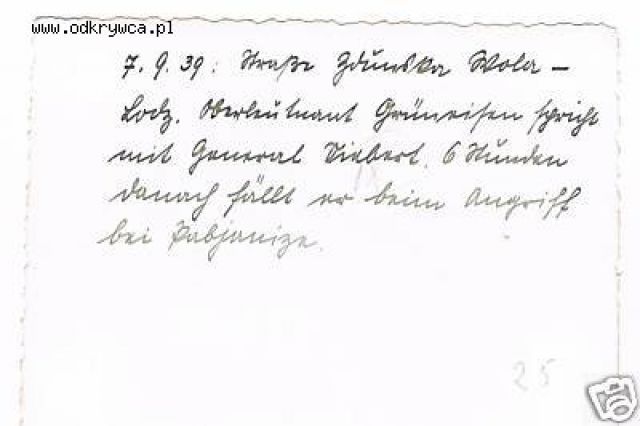 www.odkrywca.pl
7. 9. 39: Straße Zduńska Wola –
Lodz. Oberleutnant Grüneisen spricht
mit General Viebert. 6 Stunden
danach fällt er beim Angriff
bei Pabjanize.
25